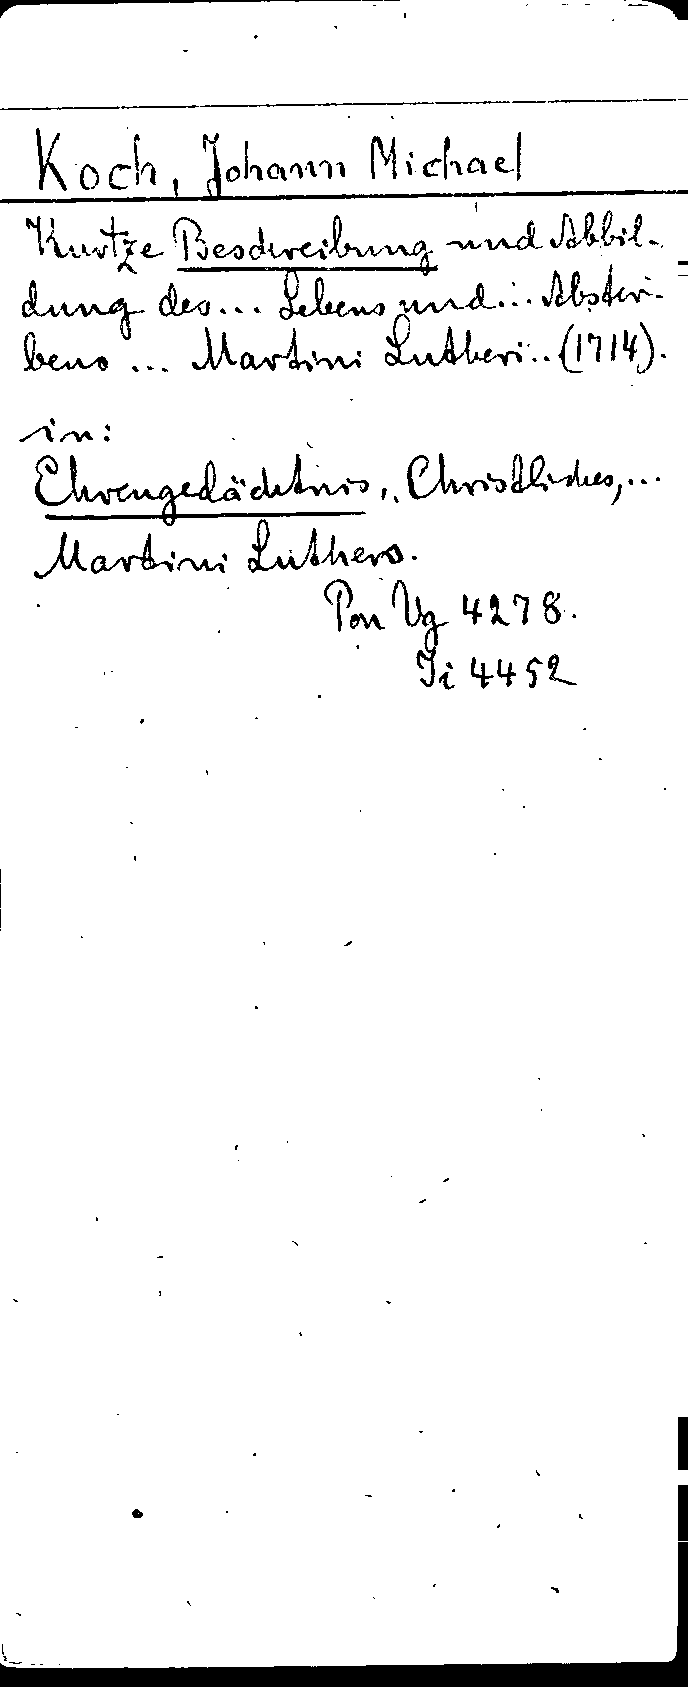 Koch, Johann Michael
Kurtze Beschreibung und Abbil-
dung des... Lebens und... Abster-
bens ... Martini Lutheri... (1714).
in:
Ehrengedächtnis, Christliches,...
Martini Luthers.
Pon Vg 4278.
Ji 4452